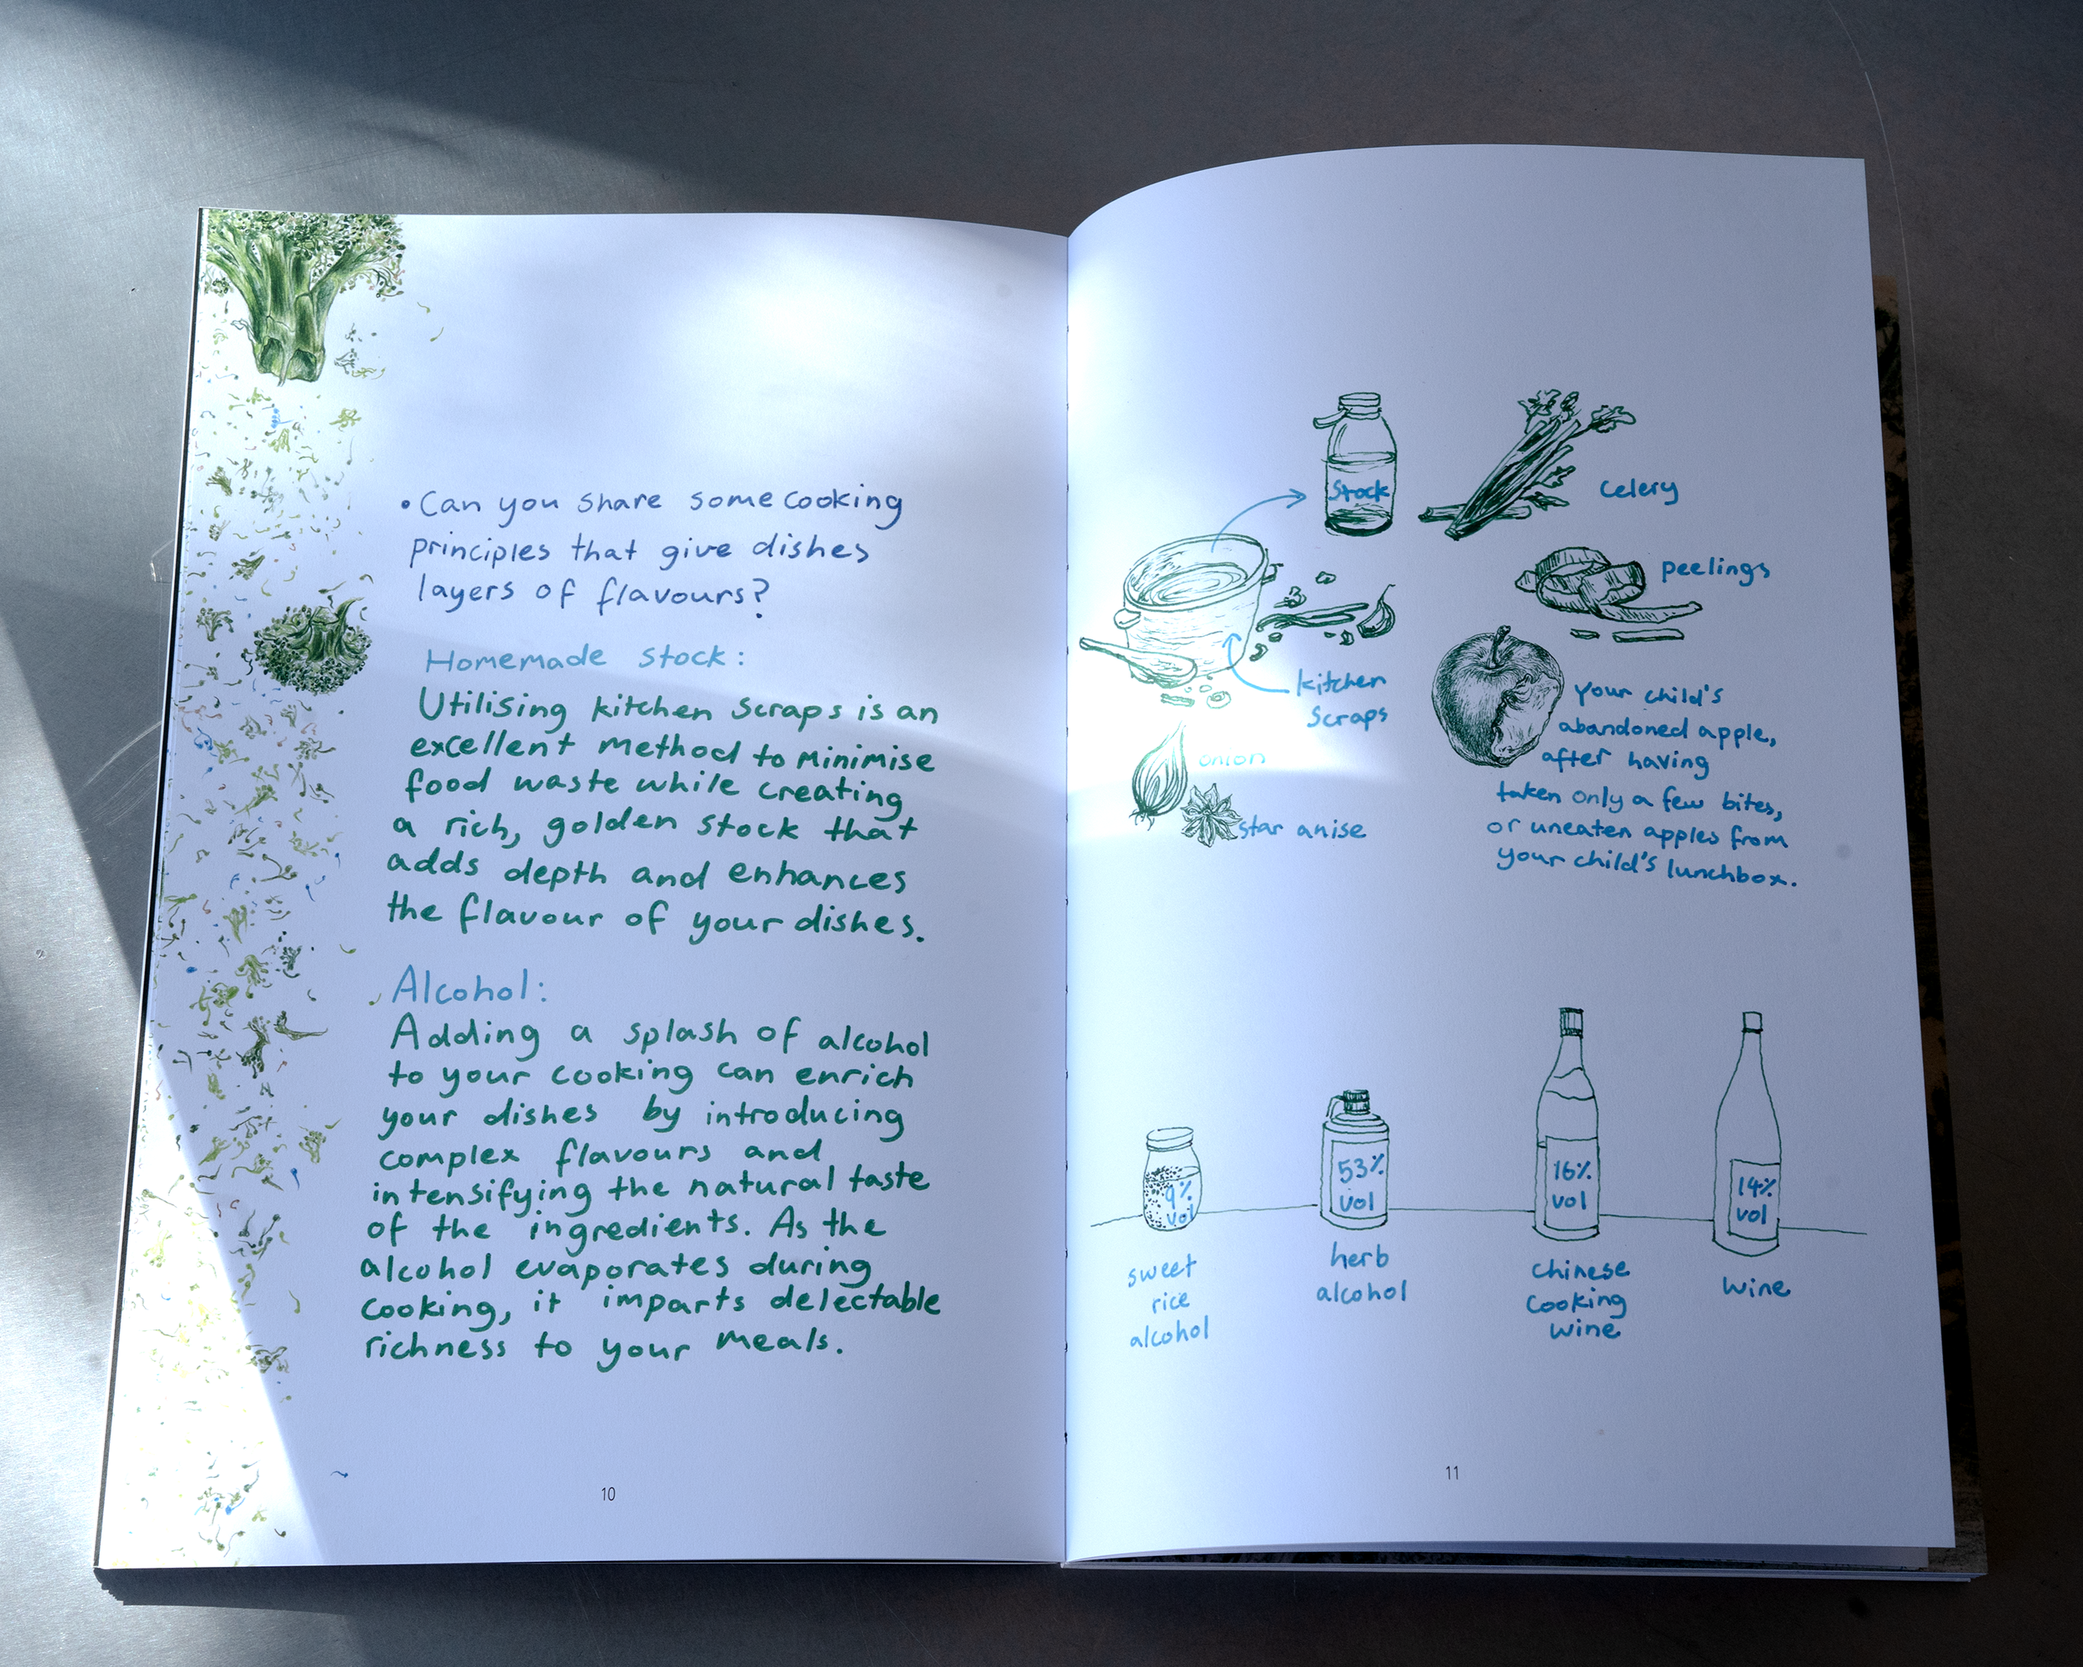 • Can you share some cooking
principles that give dishes
layers of flavours?
Homemade stock:
Utilising kitchen scraps is an
excellent method to minimise
food waste while creating
a rich, golden stock that
adds depth and enhances
the flavour of your dishes.
Alcohol:
Adding a splash of alcohol
to your cooking can enrich
your dishes by introducing
complex flavours and
intensifying the natural taste
of the ingredients. As the
alcohol evaporates during
cooking, it imparts delectable
richness to your meals.
10
Stock
celery
peelings
kitchen
scraps
onion
star anise
Your child's
abandoned apple,
after having
taken only a few bites,
or uneaten apples from
your child's lunchbox.
9%
vol
sweet
rice
alcohol
53%
vol
herb
alcohol
16%
vol
chinese
cooking
wine
14%
vol
wine
11